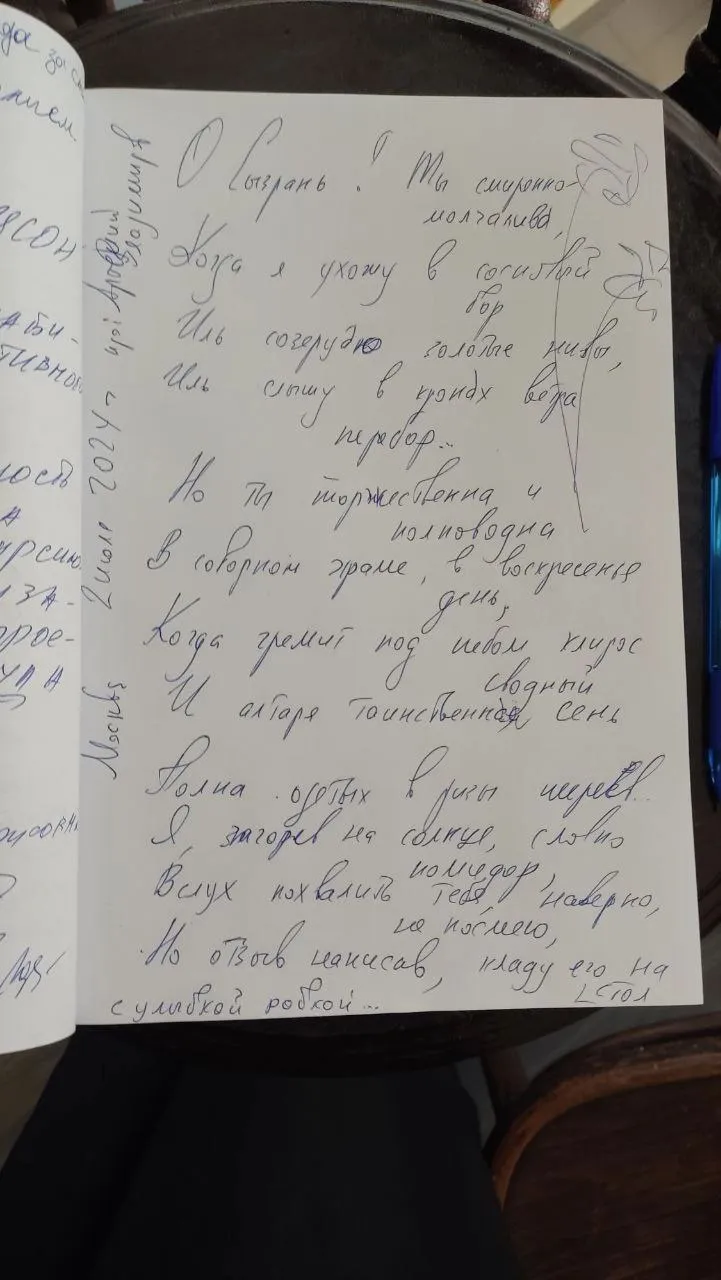 О Сызрань! Ты смиренно-
молчалива,
Когда я ухожу в сосновый
бор
Иль созерцаю золотые нивы,
Иль слышу в кронах ветра
перебор...
Но ты торжественна и
полноводна
В соборном храме, в воскресенье
день,
Когда гремит под небом клирос
сводный
И алтаря таинственная сень
Полна одетых в ризы иереев...
Я, загорев на солнце, словно
помидор,
Вслух похвалить тебя, наверно,
не посмею,
Но отзыв написав, кладу его на
стол
с улыбкой робкой...
Москва 2 июля 2024 г. Владимир
да
нием.
ЕСОН
АБИ-
ТИВНО
ность
А
ЗА-
рое-